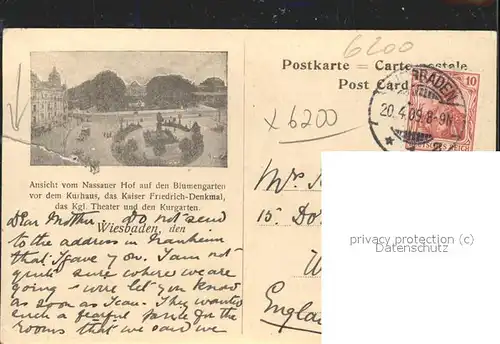 6200
Postkarte = Carte postale
Post Card
WIESBADEN
20.4.09.8-9N.
* 2
10
DEUTSCHES REICH
x 6200
Ansicht vom Nassauer Hof auf den Blumengarten
vor dem Kurhaus, das Kaiser Friedrich-Denkmal,
das Kgl. Theater und den Kurgarten.
Wiesbaden, den
Dear Mother. Do not send
to the address in Manheim
that I gave you. I am not
quite sure where we are
going - will let you know
as soon as I can. They wanted
such a fearful price for the
rooms that we said we
Mrs
15. Do
England
privacy protection
(©Oldthing.com)